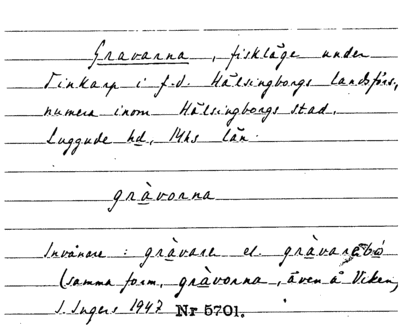 Gravarna, fiskläge under
Tinkarp i f.d. Hälsingborgs landsförs,
numera inom Hälsingborgs stad.
Luggude hd, Mhs län.
gràvorna
Invånare: gràvare el. gràvarabo
(samma form, gràvorna, även å Viken,
S. Ingers 1947 Nr 5701.